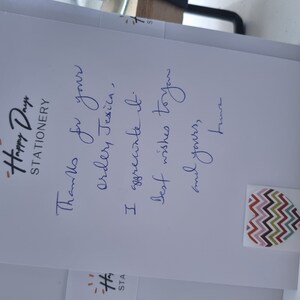 Happy Days
STATIONERY
Thanks for your
order, Jessica,
I appreciate it.
Best wishes to you
and yours,
Ha
STA